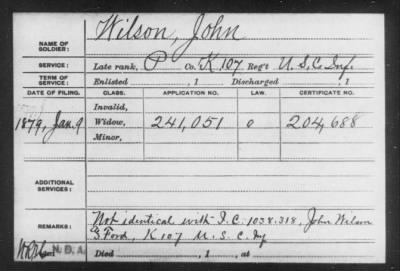 NAME OF SOLDIER: Wilson, John
SERVICE: Late rank, P Co. K 107 Reg't U. S. C. Inf.
TERM OF SERVICE: Enlisted , 1 Discharged , 1
DATE OF FILING. CLASS. APPLICATION NO. LAW. CERTIFICATE NO.
Invalid,
1879, Jan. 9 Widow, 241,051 0 204,688
Minor,
ADDITIONAL SERVICES:
REMARKS: Not identical with I.C. 1038.318, John Wilson
Ford, K 107 U. S. C. Inf
N.D.A. Died , 1 , at